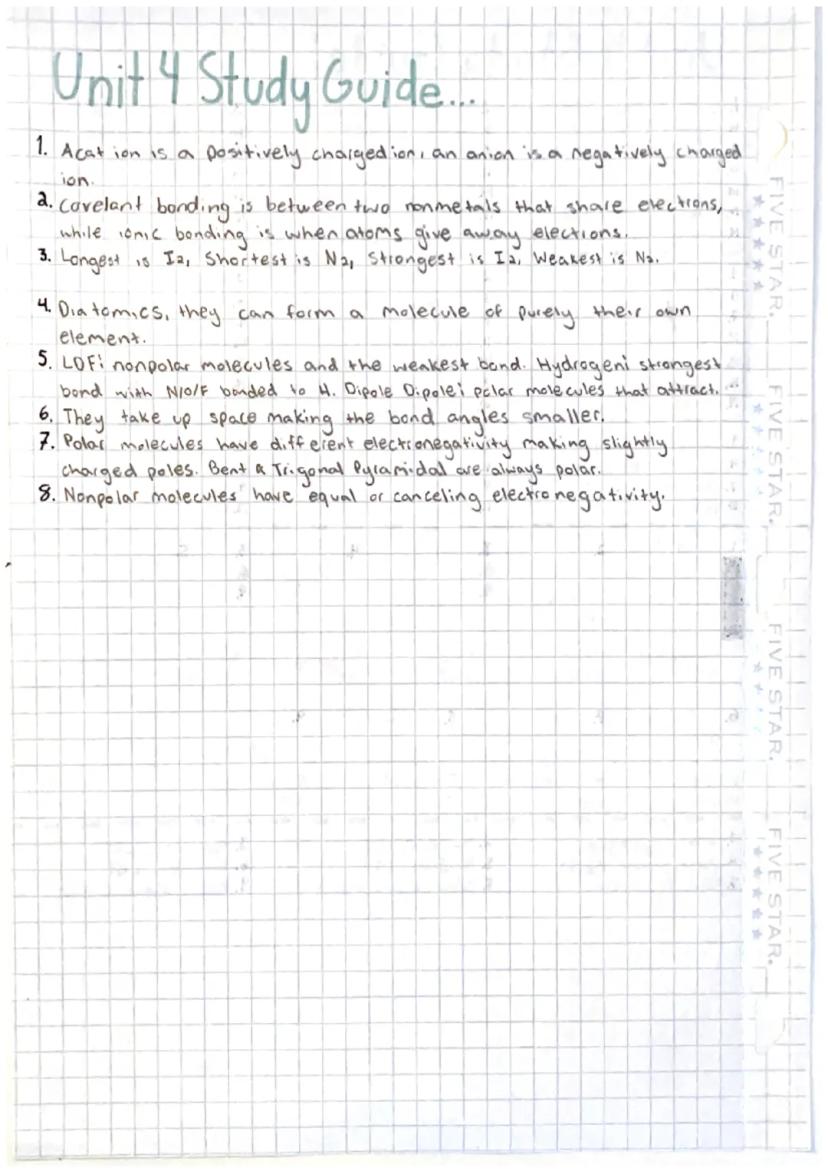 Unit 4 Study Guide...
1. A cat ion is a positively charged ion, an anion is a negatively charged
ion.
2. Covelant bonding is between two nonmetals that share electrons,
while ionic bonding is when atoms give away elections.
3. Longest is I2, Shortest is N2, Strongest is I2, Weakest is N2.
4. Diatomics, they can form a molecule of purely their own
element.
5. LDF: nonpolar molecules and the weakest bond. Hydrogen: strongest
bond with N/O/F bonded to H. Dipole Dipole: polar molecules that attract.
6. They take up space making the bond angles smaller.
7. Polar molecules have different electronegativity making slightly
charged poles. Bent & Trigonal Pyramidal are always polar.
8. Nonpolar molecules have equal or canceling electronegativity.
FIVE STAR.
FIVE STAR.
FIVE STAR.
FIVE STAR.